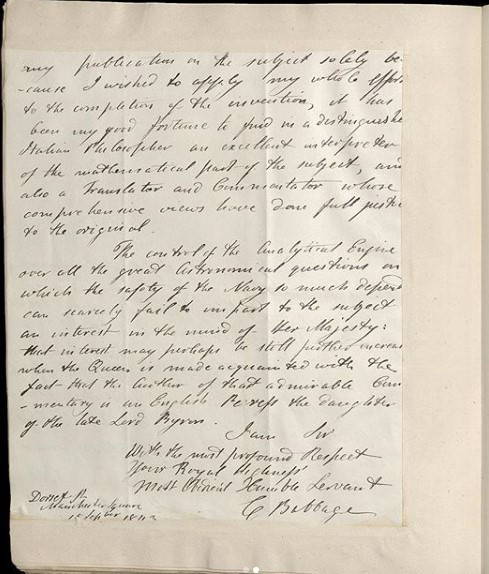 any publication on the subject solely be-
-cause I wished to apply my whole effort
to the completion of the invention, it has
been my good fortune to find in a distinguishe
Italian Philosopher an excellent interpreter
of the mathematical part of the subject, and
also a Translator and Commentator whose
comprehensive views have done full justice
to the original.
The control of the Analytical Engine
over all the great Astronomical questions on
which the safety of the Navy so much depend
can scarcely fail to impart to the subject
an interest in the mind of Her Majesty:
that interest may perhaps be still further increas
when the Queen is made acquainted with the
fact that the Author of that admirable Com
-mentary is an English Peeress the daughter
of the late Lord Byron.
I am Sir
With the most profound Respect
Your Royal Highness'
Most Obedient Humble Servant
C Babbage
Dorset St
Manchester Square
Septber 1843